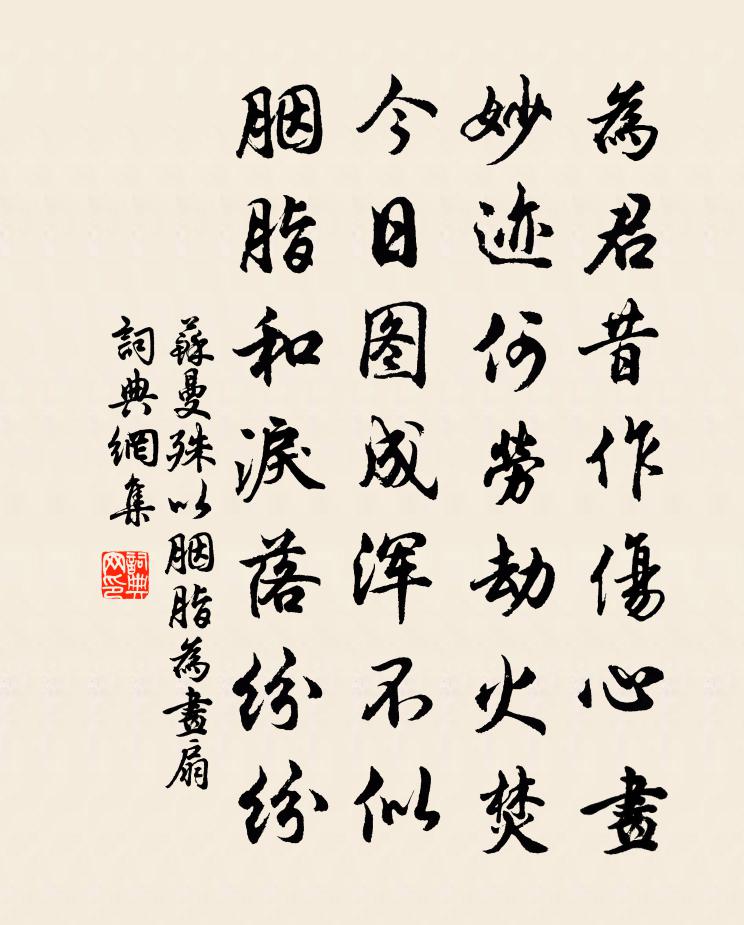 為君昔作傷心畫
妙迹何勞劫火焚
今日图成浑不似
胭脂和淚落紛紛
蘇曼殊以胭脂為畫扇
詞典網集
詞典网印